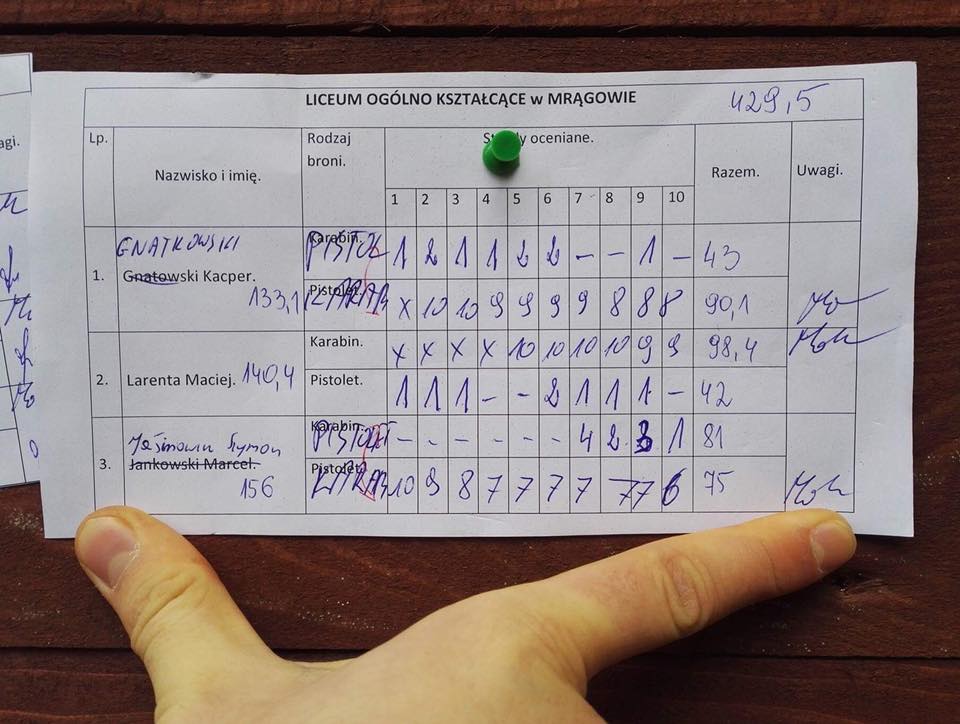 LICEUM OGÓLNO KSZTAŁCĄCE w MRĄGOWIE 429,5
Lp. Nazwisko i imię. Rodzaj broni. oceniane. Razem. Uwagi.
1 2 3 4 5 6 7 8 9 10
GNATKOWSKI
1. Gnatowski Kacper. 133,1
Karabin. PISTOL 1 2 1 1 2 2 - - 1 - 43
Pistolet. KARAB X 10 10 9 9 9 9 8 8 8 90,1
2. Larenta Maciej. 140,4
Karabin. X X X X 10 10 10 10 9 9 98,4
Pistolet. 1 1 1 - - 2 1 1 1 - 42
3. Jankowski Marcel. 156
Karabin. PISTOLET - - - - - - 4 2 3 1 81
Pistolet. KARAB 10 9 8 7 7 7 7 7 7 6 75
agi.